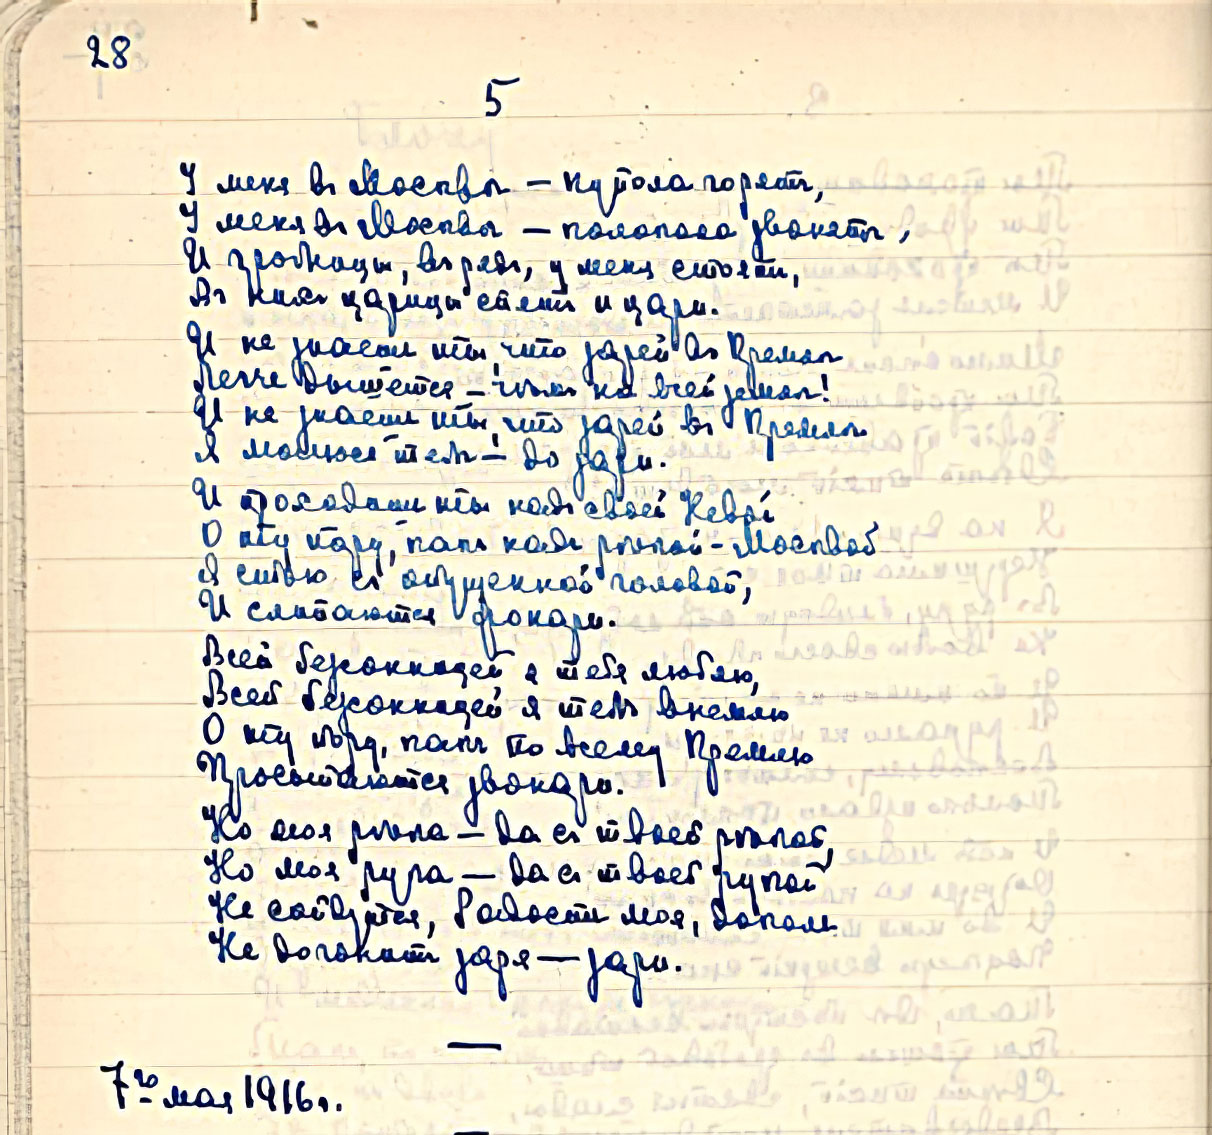 28
5
У меня въ Москвѣ — купола горятъ,
У меня въ Москвѣ — колокола звонятъ,
И гробницы, въ рядъ, у меня стоятъ,
Въ нихъ царицы спятъ и цари.
И не знаешь ты, что зарей въ Кремлѣ
Легче дышется — чѣмъ на всей землѣ!
И не знаешь ты, что зарей въ Кремлѣ
Я молюсь тебѣ — до зари.
И проходишь ты надъ своей Невой
О ту пору, какъ надъ рѣкой-Москвой
Я стою съ опущенной головой,
И слипаются фонари.
Всей безсонницей я тебя люблю,
Всей безсонницей я тебѣ внемлю
О ту пору, какъ по всему Кремлю
Просыпаются звонари.
Но моя рѣка — да съ твоей рѣкой,
Но моя рука — да съ твоей рукой
Не сойдутся, Радость моя, доколь
Не догонитъ заря — зари.
7го мая 1916г.